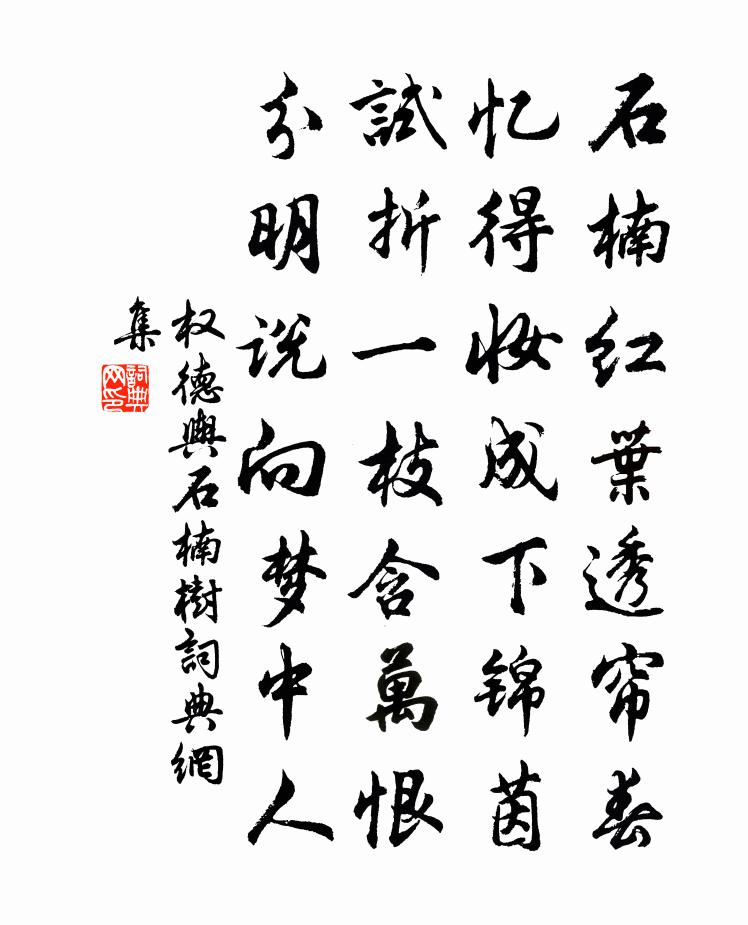 石楠红葉透帘春
忆得妆成下锦茵
試折一枝含萬恨
分明说向梦中人
权德輿石楠樹詞典網
集
詞典
网印